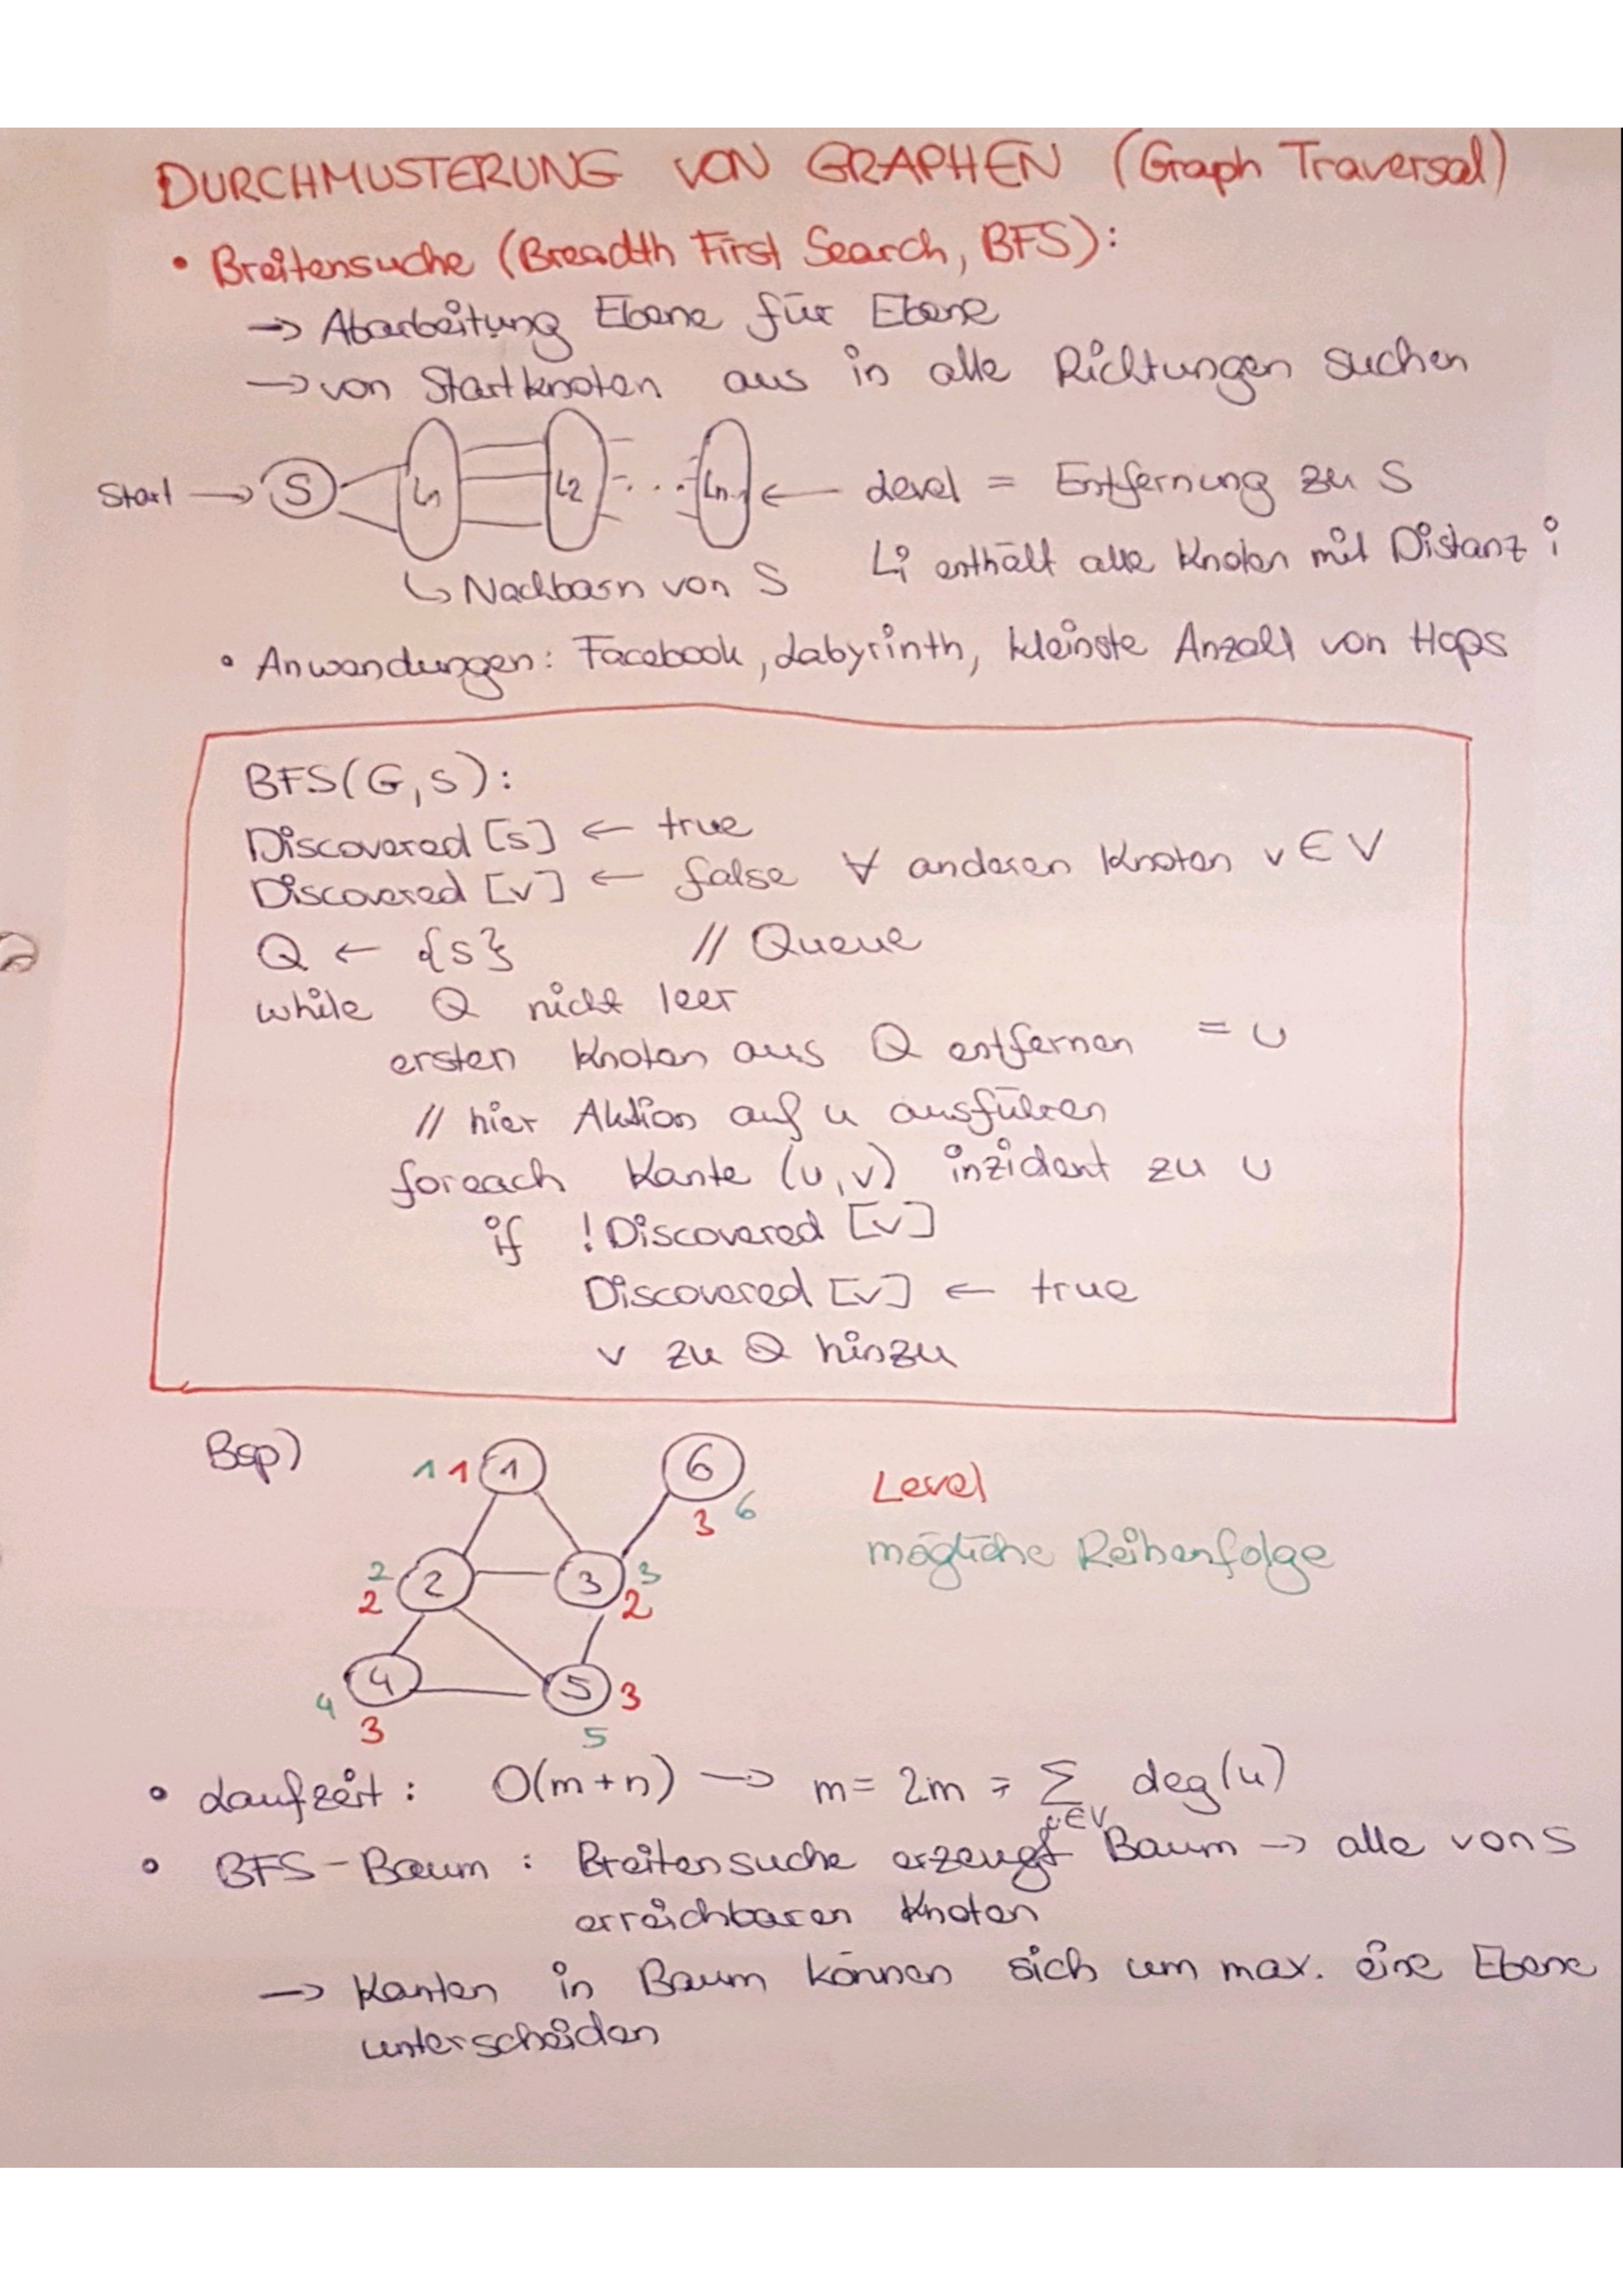 DURCHMUSTERUNG VON GRAPHEN (Graph Traversal)
• Breitensuche (Breadth First Search, BFS):
→ Abarbeitung Ebene für Ebene
→ von Startknoten aus in alle Richtungen suchen
Start → S L1 L2 ... Ln-1 ← Level = Entfernung zu S
↳ Nachbarn von S Li enthält alle Knoten mit Distanz i
• Anwendungen: Facebook, Labyrinth, kleinste Anzahl von Hops
BFS(G,s):
Discovered [s] ← true
Discovered [v] ← false ∀ anderen Knoten v ∈ V
Q ← {s} // Queue
while Q nicht leer
ersten Knoten aus Q entfernen = u
// hier Aktion auf u ausführen
foreach Kante (u,v) inzident zu u
if !Discovered [v]
Discovered [v] ← true
v zu Q hinzu
Bsp) 1 1 1 6
Level
3 6
mögliche Reihenfolge
2 2 3 3
2 2
4 5 3
4 3 5
• Laufzeit: O(m+n) → m = 2m = Σ deg(u)
u∈V
• BFS-Baum: Breitensuche erzeugt Baum → alle von s
erreichbaren Knoten
→ Kanten in Baum können sich um max. eine Ebene
unterscheiden